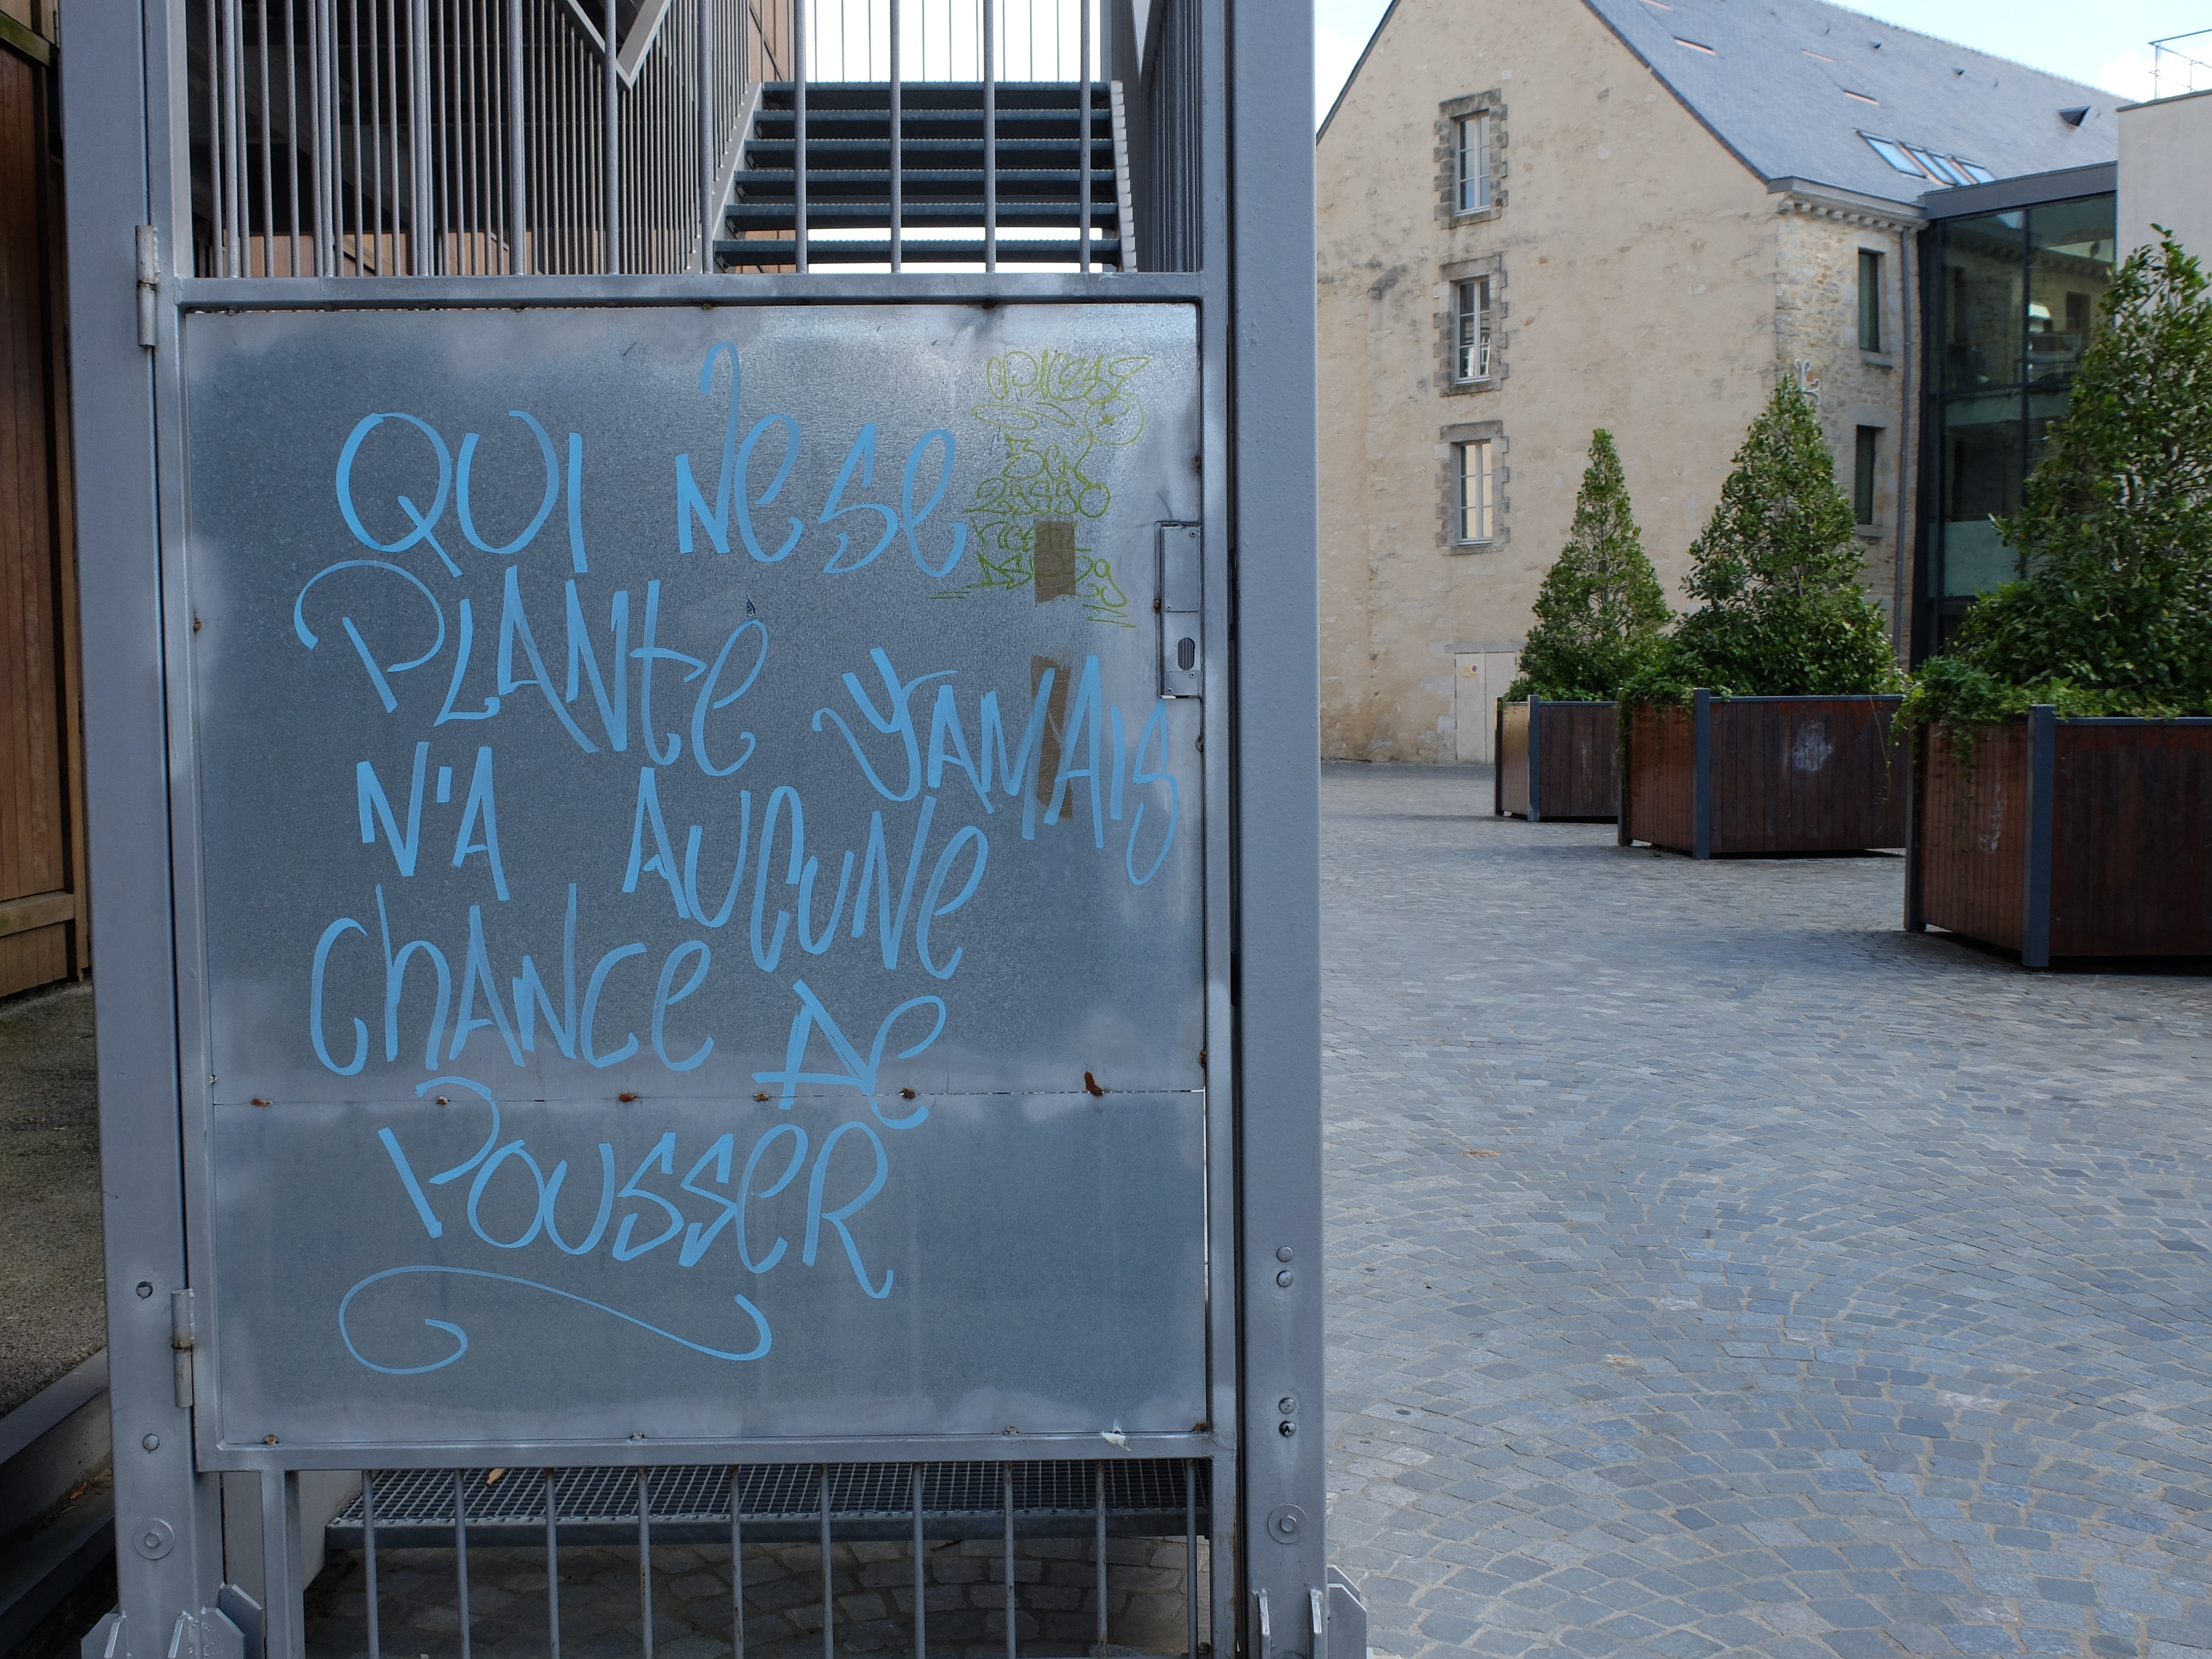 QUI NE SE
PLANTE JAMAIS
N'A AUCUNE
CHANCE DE
POUSSER